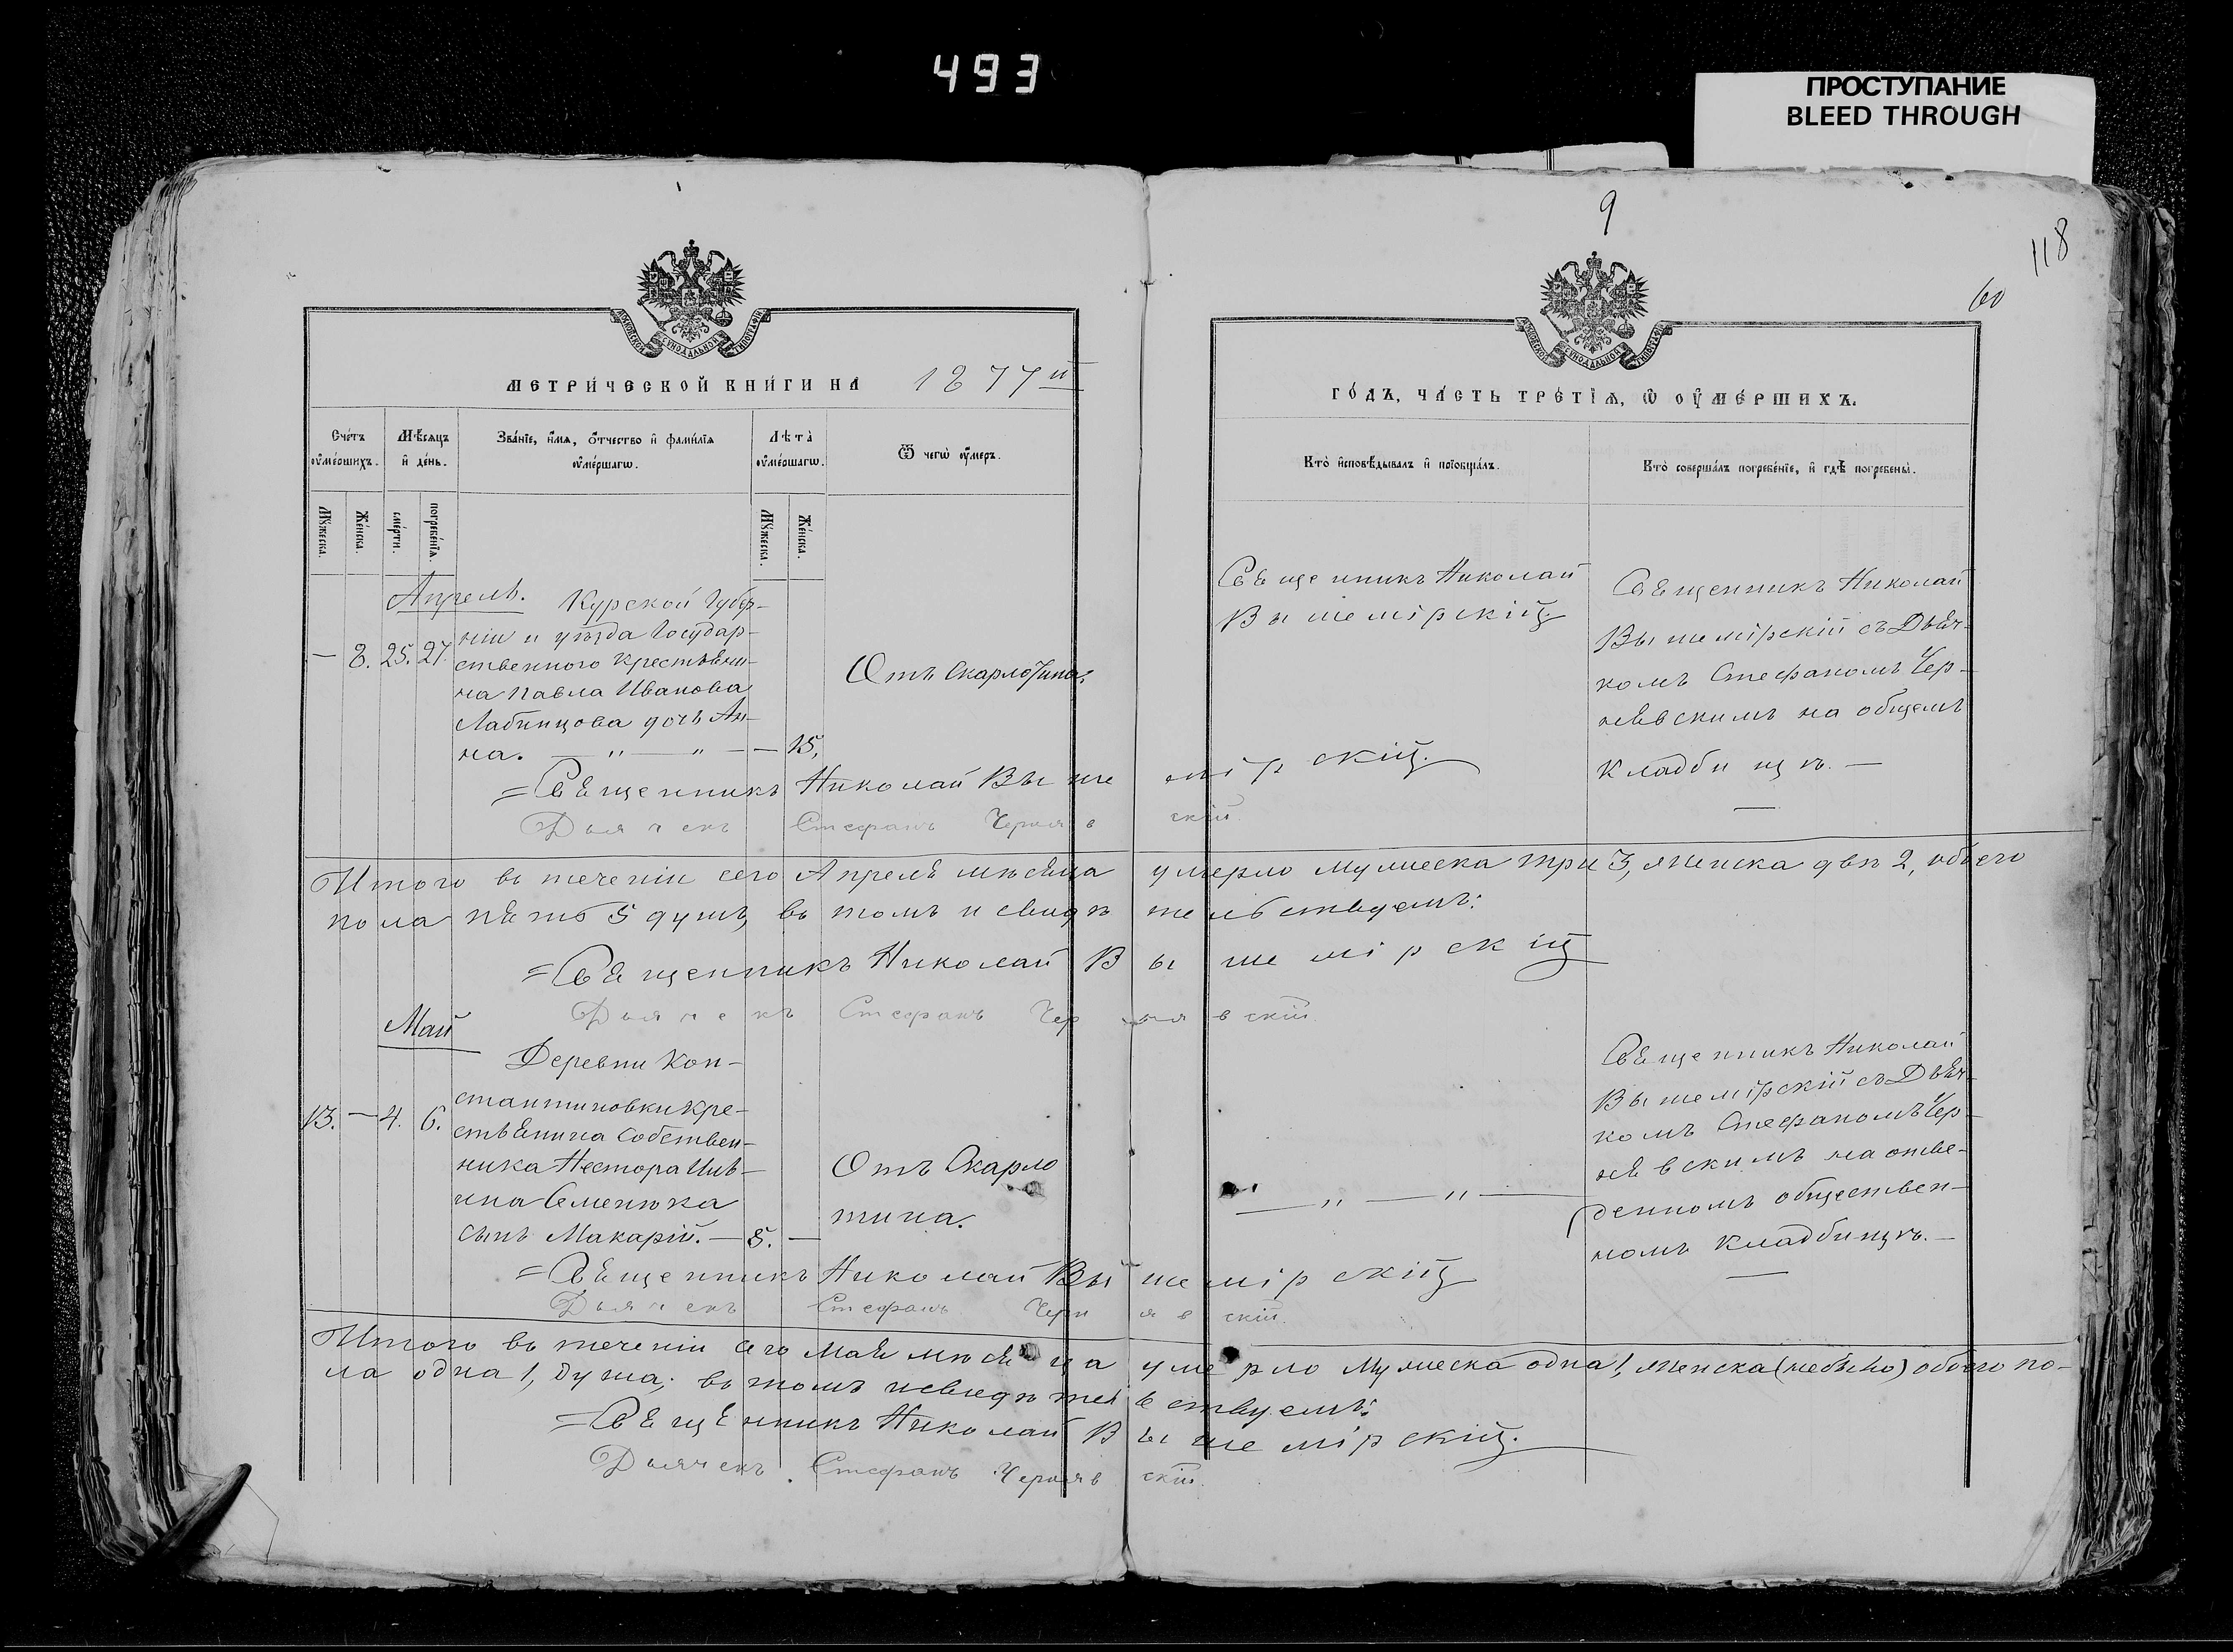 493
ПРОСТУПАНИЕ
BLEED THROUGH
9
118
60
МЕТРИ́ЧЕСКОЙ КНИ́ГИ НА 1877й
ГО́ДЪ, ЧА́СТЬ ТРЕ́ТІѦ, Ѿ ОУ҆МЕ́РШИХЪ.
Сче́тъ оу҆ме́ршихъ.
Мѣ́сѧцъ и҆ де́нь.
Зва́нїе, и҆́мѧ, ѻ҆́тчество и҆ фами́лїѧ оу҆ме́ршагѡ.
Лѣ́та оу҆ме́ршагѡ.
Ѿ чегѡ̀ оу҆́меръ.
Кто̀ и҆сповѣ́дывалъ и҆ прїобща́лъ.
Кто̀ соверша́лъ погребе́нїе, и҆ гдѣ̀ погребены̀.
Мꙋ́жеска.
Же́нска.
сме́рти.
погребе́нїѧ.
Мꙋ́жеска.
Же́нска.
Апрель.
Курской Губер-
ніи и уѣзда Государ-
— 8. 25. 27. ственного крестьяни-
на Павла Иванова
Лабинцова дочь Ан-
на. — " — " — — 15.
Отъ Скарлотина.
Священникъ Николай
Вышемірскій.
Священникъ Николай
Вышемірскій съ Дьяч-
комъ Стефаномъ Чер-
нявскимъ на общемъ
кладбищѣ. —
= Священникъ Николай Вышемірскій.
Дьячекъ Стефанъ Чернявскій.
Итого въ теченіи сего Апреля мѣсяца умерло мужеска три 3, женска двѣ 2, обоего
пола пять 5 душъ, въ томъ и свидѣтельствуемъ:
= Священникъ Николай Вышемірскій
Дьячекъ Стефанъ Чернявскій.
Май
Деревни Кон-
стантиновки кре-
13. — 4. 6. стьянина Собствен-
ника Нестора
Семенюка
сынъ Макарій. — 8. —
Отъ Скарло
тина.
— " — " —
Священникъ Николай
Вышемірскій съ Дьяч-
комъ Стефаномъ Чер-
нявскимъ на отве-
денномъ обществен-
номъ кладбищѣ. —
= Священникъ Николай Вышемірскій
Дьячекъ Стефанъ Чернявскій.
Итого въ теченіи сего Мая мѣсяца умерло мужеска одна 1, женска (небыло) обоего по-
ла одна 1, душа; въ томъ и свидѣтельствуемъ:
= Священникъ Николай Вышемірскій.
Дьячекъ Стефанъ Чернявскій.